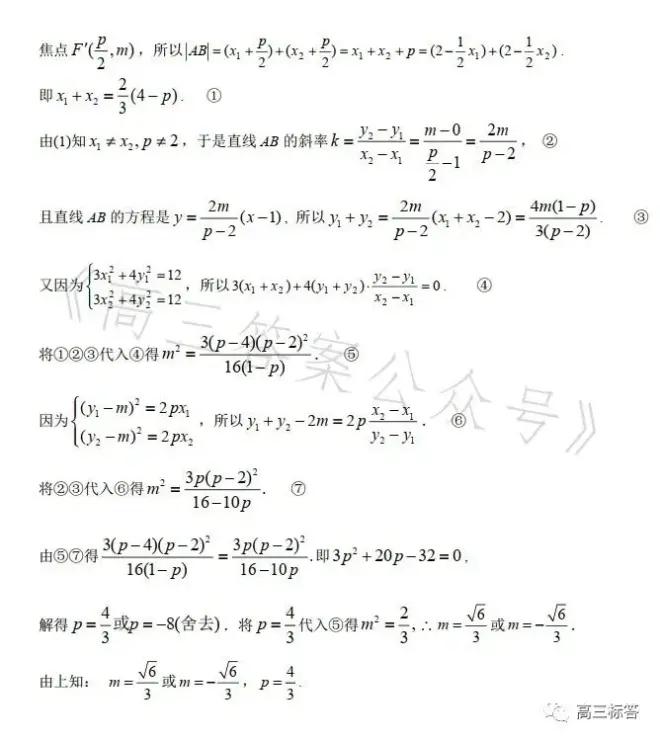 焦点 F′(p/2, m)，所以|AB| = (x₁ + p/2) + (x₂ + p/2) = x₁ + x₂ + p = (2 − 1/2 x₁) + (2 − 1/2 x₂).
即 x₁ + x₂ = 2/3 (4 − p). ①
由(1)知 x₁ ≠ x₂, p ≠ 2，于是直线 AB 的斜率 k = (y₂ − y₁)/(x₂ − x₁) = (m − 0)/(p/2 − 1) = 2m/(p − 2)，②
且直线 AB 的方程是 y = 2m/(p − 2) (x − 1)，所以 y₁ + y₂ = 2m/(p − 2) (x₁ + x₂ − 2) = 4m(1 − p)/(3(p − 2)). ③
又因为 {3x₁² + 4y₁² = 12
3x₂² + 4y₂² = 12，所以 3(x₁ + x₂) + 4(y₁ + y₂)·(y₂ − y₁)/(x₂ − x₁) = 0. ④
将①②③代入④得 m² = 3(p − 4)(p − 2)²/(16(1 − p)). ⑤
因为 {(y₁ − m)² = 2px₁
(y₂ − m)² = 2px₂，所以 y₁ + y₂ − 2m = 2p (x₂ − x₁)/(y₂ − y₁). ⑥
将②③代入⑥得 m² = 3p(p − 2)²/(16 − 10p). ⑦
由⑤⑦得 3(p − 4)(p − 2)²/(16(1 − p)) = 3p(p − 2)²/(16 − 10p). 即 3p² + 20p − 32 = 0，
解得 p = 4/3 或p = −8(舍去). 将 p = 4/3 代入⑤得 m² = 2/3, ∴ m = √6/3 或 m = −√6/3.
由上知： m = √6/3 或 m = −√6/3，p = 4/3.
《高三答案公众号》
高三标答